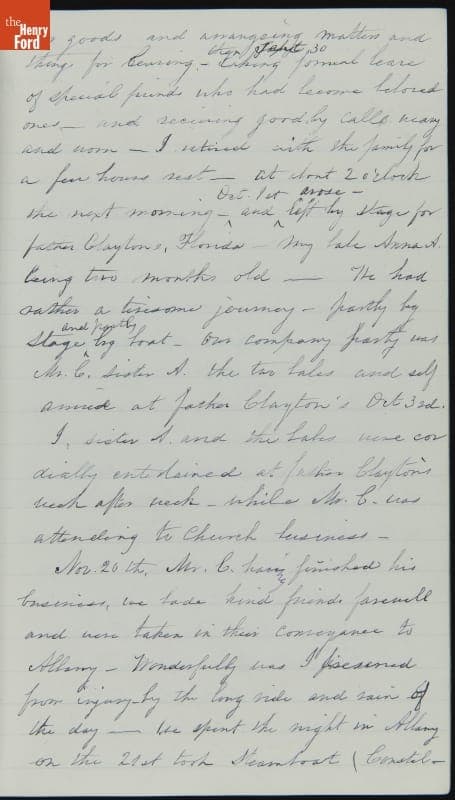 the Henry Ford
goods and arrangeing matters and
then Sept. 30
things for leaving - taking formal leave
of special friends who had become beloved
ones - and receiving good by calls weary
and worn - I retired with the family for
a few hours rest - at about 2 o'clock
Oct. 1st arose -
the next morning - and left by stage for
father Clayton's, Florida - My babe Anna A.
being two months old - We had
rather a tiresome journey - partly by
and partly
stage by boat - Our company party was
Mr. C. sister A. the two babes and self
arrived at father Clayton's Oct 3rd.
I, sister A. and the babes were cor
dially entertained at father Clayton's
week after week - while Mr. C. was
attending to Church business -
Nov. 20th, Mr. C. having finished his
business, we bade kind friends farewell
and were taken in their conveyance to
Albany - Wonderfully was I preserved
from injury by the long ride and rain of
the day - we spent the night in Albany
on the 21st took Steamboat (Constel-